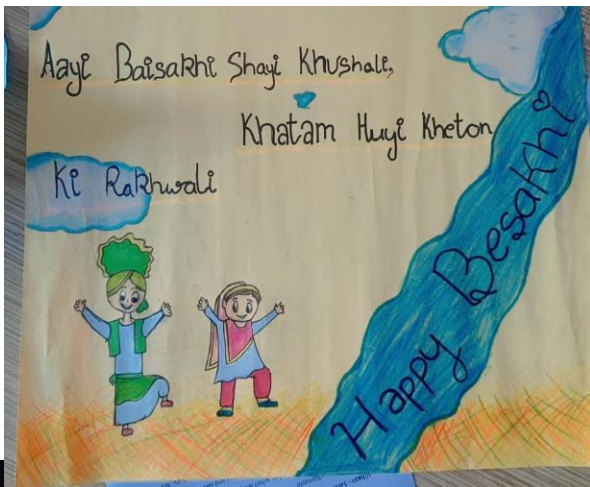 Aayi Baisakhi Shayi Khushali,
Khatam Huyi Kheton
Ki Rakhwali
Happy Besakhi